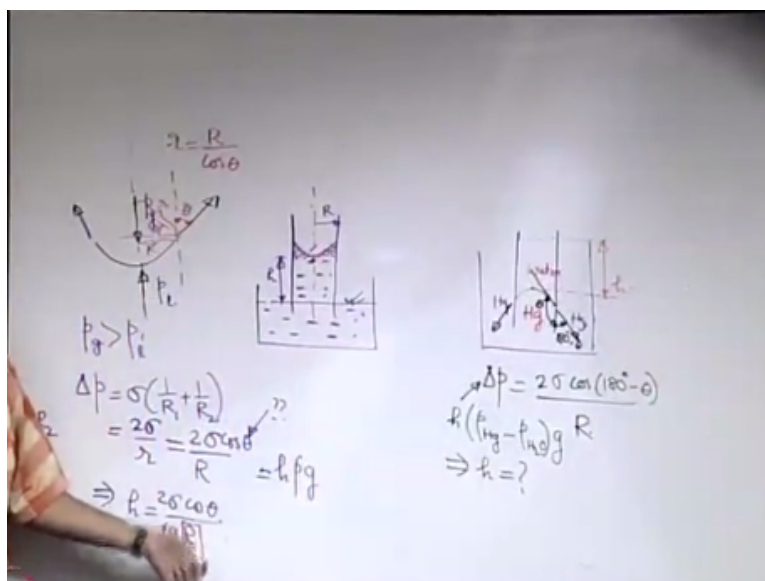 r = R / cos θ
θ
R
P_l
P_g > P_l
Δp = σ(1/R₁ + 1/R₂)
= 2σ/r = 2σ cos θ / R = hρg
??
⇒ h = 2σ cos θ
R
h
water
Hg
Hg
θ
180°-θ
h
Δp = 2σ cos(180° - θ) / R
h(ρ_Hg - ρ_H₂O)g
⇒ h = ?